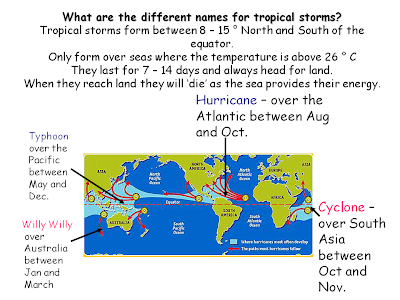 What are the different names for tropical storms?
Tropical storms form between 8 – 15 ° North and South of the
equator.
Only form over seas where the temperature is above 26 ° C
They last for 7 – 14 days and always head for land.
When they reach land they will ‘die’ as the sea provides their energy.
Hurricane – over the
Atlantic between Aug
and Oct.
Typhoon
over the
Pacific
between
May and
Dec.
Willy Willy
over
Australia
between
Jan and
March
Cyclone –
over South
Asia
between
Oct and
Nov.
ASIA
North
Pacific
Ocean
NORTH
AMERICA
North
Atlantic
Ocean
EUROPE
ASIA
AFRICA
Equator
AUSTRALIA
South
Pacific
Ocean
SOUTH
AMERICA
South
Atlantic
Ocean
Where hurricanes most often develop
The paths most hurricanes follow